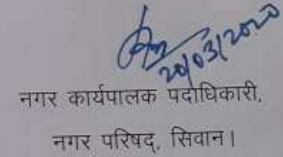 20/03/2020
नगर कार्यपालक पदाधिकारी,
नगर परिषद्, सिवान।